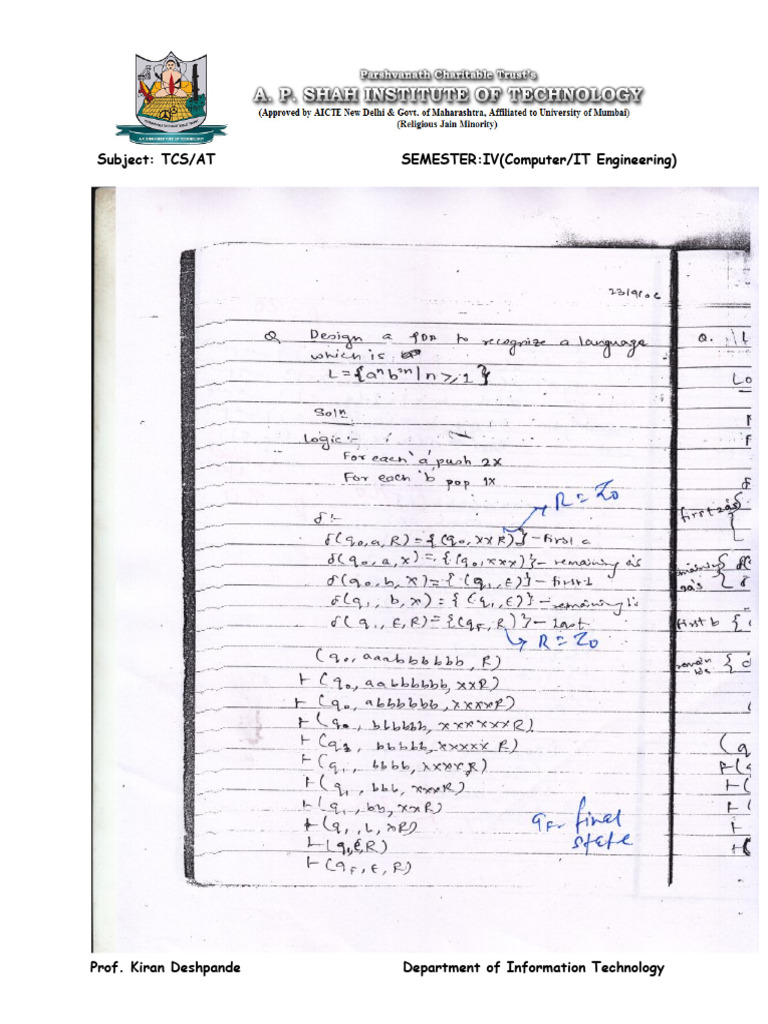 Parshvanath Charitable Trust's
A. P. SHAH INSTITUTE OF TECHNOLOGY
(Approved by AICTE New Delhi & Govt. of Maharashtra, Affiliated to University of Mumbai)
(Religious Jain Minority)
Subject: TCS/AT SEMESTER:IV(Computer/IT Engineering)
Q Design a PDA to recognize a language
which is
L = {aⁿ b²ⁿ | n ≥ 1}
Soln
Logic :-
For each 'a' push 2x
For each 'b' pop 1x
R = Z₀
δ :-
δ(q₀, a, R) = {(q₀, xxR)} - first a
δ(q₀, a, x) = {(q₀, xxx)} - remaining a's
δ(q₀, b, x) = {(q₁, ε)} - first 1
δ(q₁, b, x) = {(q₁, ε)} - remaining 1's
δ(q₁, ε, R) = {(qF, R)} - last
R = Z₀
(q₀, aaabbbbbb, R)
⊢ (q₀, aabbbbbb, xxR)
⊢ (q₀, abbbbbb, xxxxR)
⊢ (q₀, bbbbbb, xxxxxxR)
⊢ (q₁, bbbbb, xxxxxR)
⊢ (q₁, bbbb, xxxxR)
⊢ (q₁, bbb, xxxR)
⊢ (q₁, bb, xxR)
⊢ (q₁, b, xR)
⊢ (q₁, ε, R)
⊢ (qF, ε, R)
qF - final
state
Q.
first 2a's
remaining
2a's
first b
Prof. Kiran Deshpande Department of Information Technology